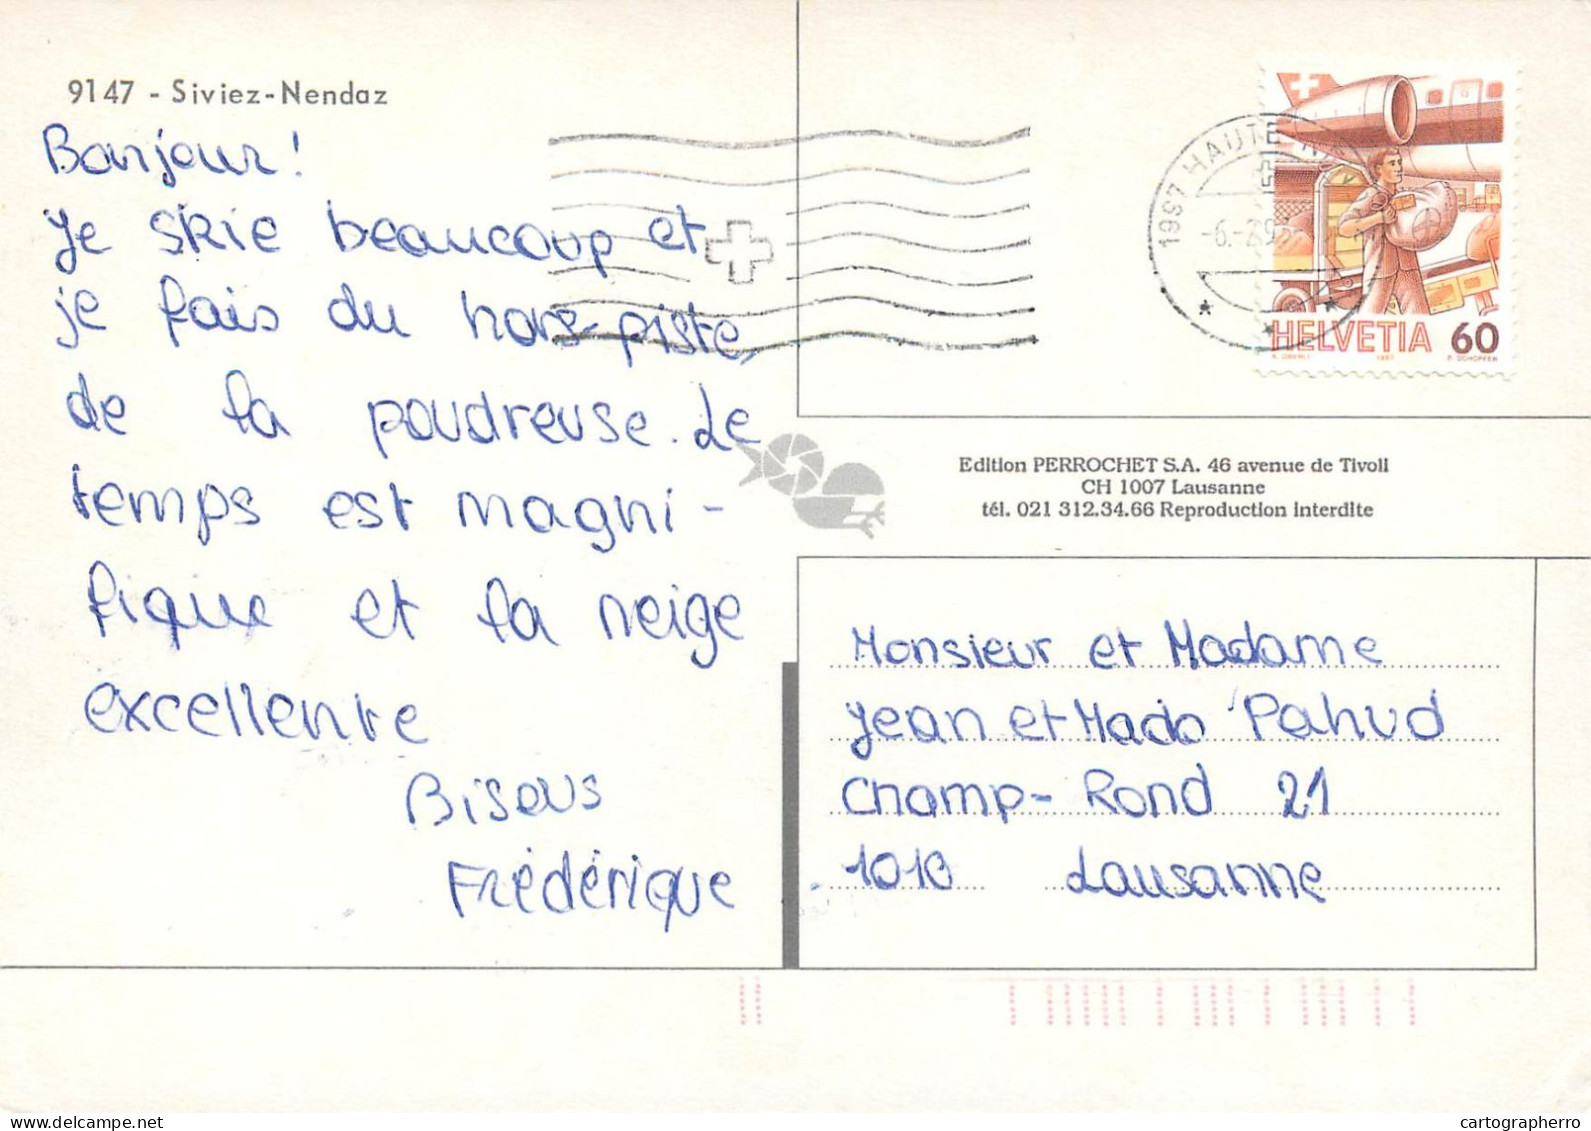 9147 - Siviez-Nendaz
Bonjour!
Je skie beaucoup et
je fais du hors-piste,
de la poudreuse. Le
temps est magni-
fique et la neige
excellente
Bisous
Frédérique
1997 HAUTE-
-6.-2.9
HELVETIA 60
1987
Edition PERROCHET S.A. 46 avenue de Tivoli
CH 1007 Lausanne
tél. 021 312.34.66 Reproduction interdite
Monsieur et Madame
Jean et Mado Pahud
Champ-Rond 21
1010 Lausanne
delcampe.net
cartographerro